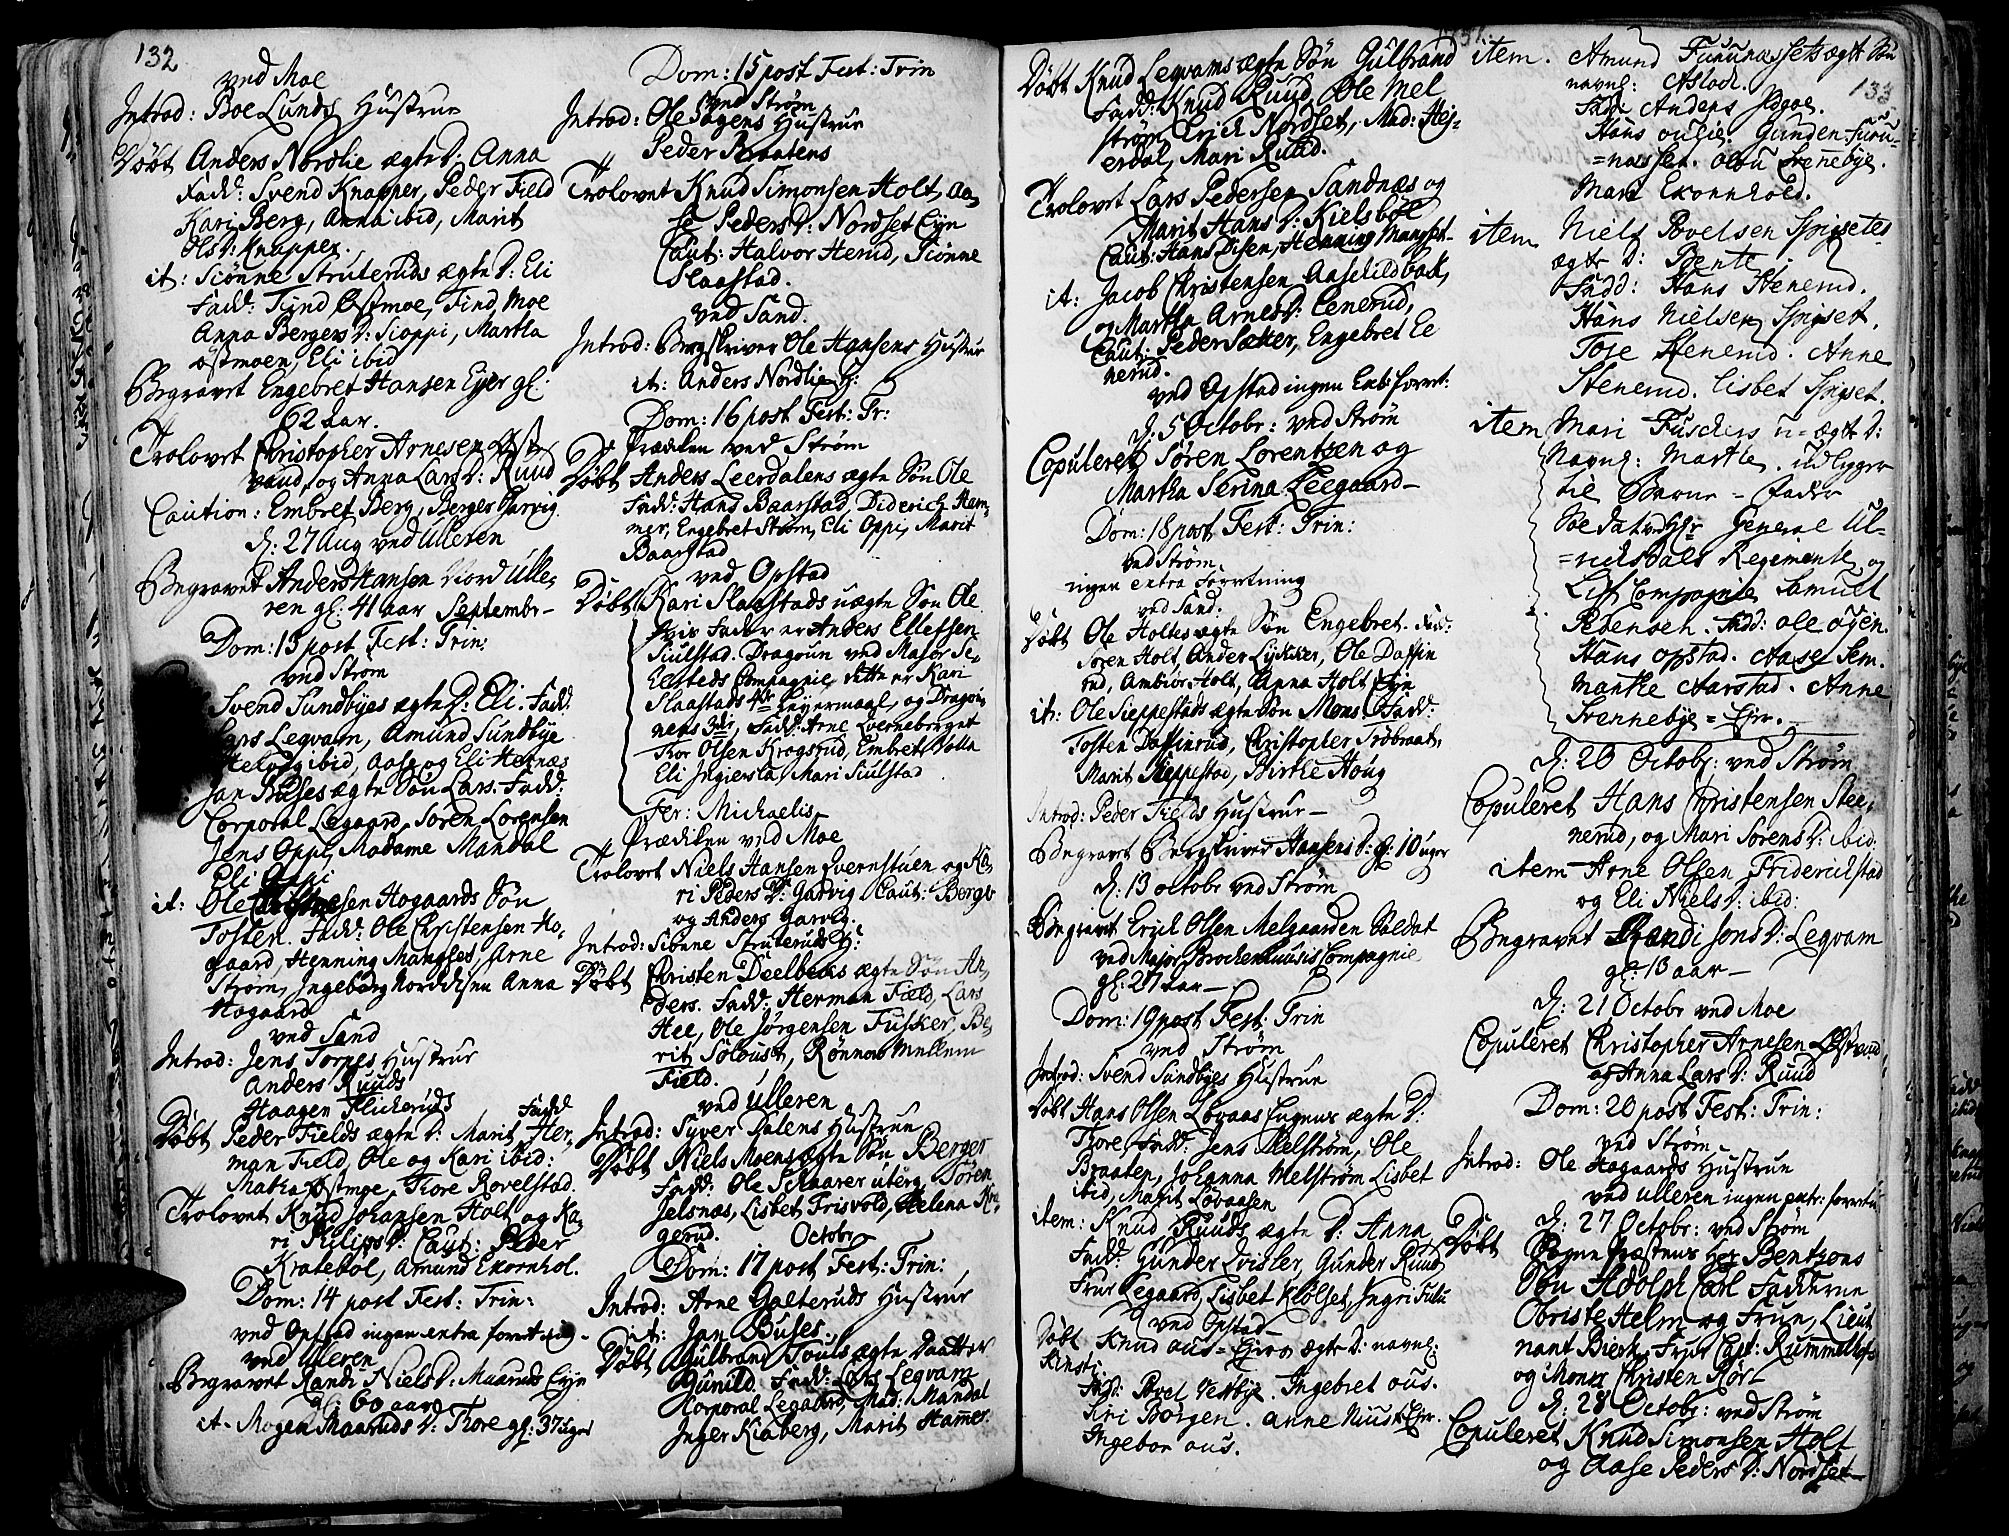 132
ved Moe
Introd: Boe Lunds Hustrue
Døbt Anders Nordlie ægte D: Anna
Fadd: Svend Knapper, Peder Field
Kari Berg, Anna ibid, Marit
Ols D: Knapper.
it: Siønne Struteruds ægte D: Eli
Fadd: Find Østmoe, Find Moe
Anna Bergers D: Sioppi, Martha
Østmoen, Eli ibid
Begravet Engebret Hansen Eyer gl:
62 aar.
Trolovet Christopher Arnesen Øst
vand, og Anna Lars D: Ruud
Caution: Embret Berg, Berger Garvig
d: 27 Aug ved Ulleren
Begravet Anders Hansen Nord Ulle,
ren gl: 41 aar Septembr-
Dom: 13 post Fest: Trin:
ved Strøm
Svend Sundbyes ægte D: Eli. Fadd:
Lars Legvam, Amund Sundbye
ibid, Aase og Eli Hernæs
Jan Buses ægte Søn Lars. Fadd:
Corporal Legaard, Søren Lorensen
Jens Oppi, Madame Mandal
Eli Oppi
it: Ole Hogaards Søn
Tosten. Fadd: Ole Christensen Ho,
gaard, Henning Mangset, Arne
Strøm, Ingeborg Norddisen Anna
Hogaard
ved Sand
Introd: Jens Tornes Hustrue
Anders Ruuds
Haagen Flickeruds
Døbt Peder Fields ægte D: Marit Fadd Her,
man Field, Ole og Kari ibid:
Østmoe, Thore Rovelstad.
Trolovet Knud Johansen Holt og Ka,
ri Philips D: Caut: Peder
Kratebøl, Amund Ekornhol.
Dom: 14 post Fest: Trin:
ved Opstad ingen extra forretning-
ved Ulleren
Begravet Randi Niels D: Maarud Eyn
gl: 60 aar
it- Mogen Maaruds D: Thore gl: 37 uger
Dom: 15 post Fest: Trin
ved Strøm
Introd: Ole Sagens Hustrue
Peder Braatens
Trolovet Knud Simonsen Holt, Aa,
se Peders D: Nordset Eyn
Caut: Halvor Herud, Siønne
Slaastad.
ved Sand.
Introd: Bergskriver Ole Hansens Hustrue
it: Anders Nordlie H:
Dom: 16 post Fest: Tr:
Prædiken ved Strøm
Døbt Anders Leerdalens ægte Søn Ole
Fadd: Hans Baarstad, Diderich Ham,
mer, Engebret Strøm, Eli Oppi, Marit
Baarstad
ved Opstad
Døbt Kari Slaastads uægte Søn Ole
hvis Fader er Anders Ellefsen
Siulstad. Dragoun ved Major Se,
Compagnie, dette er Kari
Slaastads 4de Leyermaal, og Dragou,
nens 3die, Fadd: Arne Lverneborget
Thor Olsen Krogsrud, Embret Volla
Eli Ingiersta, Mari Siulstad
Fer: Michaelis
Prædiken ved Moe
Trolovet Niels Hansen Evernstuen og Ka,
ri Peders D: Garvig Caut: Berger
og Anders Garvig.
Introd: Siønne Struteruds H:
Døbt Christen Deelbecks ægte Søn An,
ders. Fadd: Herman Field, Lars
Hee, Ole Jørgensen Fusker, Be,
rit Solbust, Rønnov Mellem
Field.
ved Ulleren
Introd: Syver Dalens Hustrue
Døbt Niels Moens ægte Søn Berger
Fadd: Ole Skaarer uterg, Søren
Jelsnæs, Lisbet Frisvold, Helena
gerud.
Octobr
Dom: 17 post Fest: Trin:
Introd: Arne Galteruds Hustrue
it: Jan Buses
Døbt Gulbrand Fouls ægte Daatter
Gunild. Fadd: Lars Legvam
Corporal Legaard, Mad: Mandal
Inger Kiaberg, Marit Hamer
Døbt Knud Legvams ægte Søn Gulbrand
Fadd: Knud Ruud, Ole Mel
strøm Erich Nordset, Mad: Hei,
erdal, Mari Ruud.
Trolovet Lars Pedersen Sandnæs og
Marit Hans D: Kielsbøl
Caut: Hans Disen, Henning Mangset-
it: Jacob Christensen Aaseildbak,
og Martha Arnes D: Eenerud,
Caut: Peder Sætter, Engebret Ee
nerud.
ved Opstad ingen Extr: forret:
d: 5 Octobr: ved Strøm
Copuleret Søren Lorentzen og
Martha Serina Leegaard-
Dom: 18 post Fest: Trin:
ved Strøm
ingen extra Forretning
ved Sand.
Døbt Ole Holtes ægte Søn Engebret. Fad:
Søren Holt, Ander Lykker, Ole Daffin
rud, Ambiør Holt, Anna Holt Eyn
it: Ole Sieppestads ægte Søn Mons. Fadd:
Tosten Daffinrud, Christopher Trøbraat,
Marit Sieppestad, Birthe Houg
Introd: Peder Fields Hustrue-
Begravet Bergskriver Hansens D: gl: 10 uger
d: 13 octobr ved Strøm
Begravet Erich Olsen Melgaarden Soldat
ved Major Brochenhuusis Compagnie
gl: 27 aar-
Dom: 19 post Fest: Trin
ved Strøm
Introd: Svend Sundbyes Hustrue
Døbt Hans Olsen Lovaas Eugnes ægte D:
Thore, Fadd: Jens Melstrøm, Ole
Braaten, Johanna Melstrøm Lisbet
ibid, Marit Lovaasen
item: Knud Ruuds ægte D: Anna
Fadd: Gunder Lvisler, Gunder Ruud
Frue Legaard, Lisbet Kølset, Ingri Fulu
ved Opstad-
Døbt Knud aus= Eyers ægte D: navnl:
Kirsti
Fadd: Povel Vestbye. Ingebret aus.
Siri Børgen. anne Eyer.
Ingebor aus.
item. Amund Furunæssets ægte Søn
navnl: Aslack.
133
Fadd: Anders Ydgoe.
Hans oulie. Gunden Furu-
=nasset. Olou Svennebye.
Mari Exonnhold.
item Niels Povelsen Spigsetes
ægte D: Bente
Fadd: Hans Stenerud.
Hans Nielsen Spigset.
Tose Stenerud. Anne
Stenerud. Lisbet Spigset.
item Mari Fuschers u=ægte D:
Navnl: Marthe. udlegger
til Barne=Fader
Soldat ved Hr General Ul-
=richsdals Regimente og
Lif Compagnie Samuel
Pedersen. Fadd: Ole ogen.
Hans Opstad. Aase Sem.
Marthe Aarstad. Anne
Svennebye=Eyr.
d: 20 Octobr: ved Strøm
Copuleret Hans Christensen Stee,
nerud, og Mari Sørens D: ibid:
item Arne Olsen Fridericstad
og Eli Niels D: ibid:
Begravet Randi Jons D: Legvam
gl: 13 aar-
d: 21 Octobr ved Moe
Copuleret Christopher Arnesen Østvand
og Anna Lars D: Ruud
Dom: 20 post Fest: Trin:
ved Strøm
Introd: Ole Hogaards Hustrue
ved Ulleren ingen extr: forretn
d: 27 Octobr: ved Strøm
Døbt Sogne Præstens Her Benthons
Søn Adolph Carl Fadderne
Obriste Helm og Frue, Lieut
nant Bierk, Frue Capt: Rummelhof
og Mons: Christen Rør-
d: 28 Octobr: ved Strøm
Copuleret Knud Simonsen Holt
og Aase Peders D: Nordset